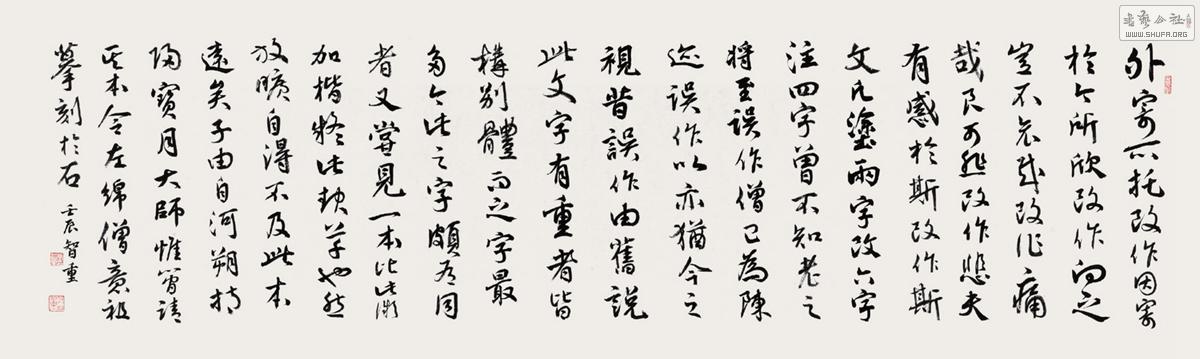 外寄所托改作因寄
於今所欣改作向之
豈不哀哉改作痛
哉良可悲改作悲夫
有感於斯改作斯
文凡塗兩字改六字
注四字曾不知老之
將至誤作僧已為陳
迹誤作以亦猶今之
視昔誤作由舊說
此文字有重者皆
構別體而之字最
多今此之字頗有同
者又嘗見一本比此微
加楷疑此起草也然
放曠自得不及此本
遠矣子由自河朔持
歸寶月大師惟簡請
其本令左綿僧意祖
摹刻於石
壬辰智重
書藝公社
WWW.SHUFA.ORG